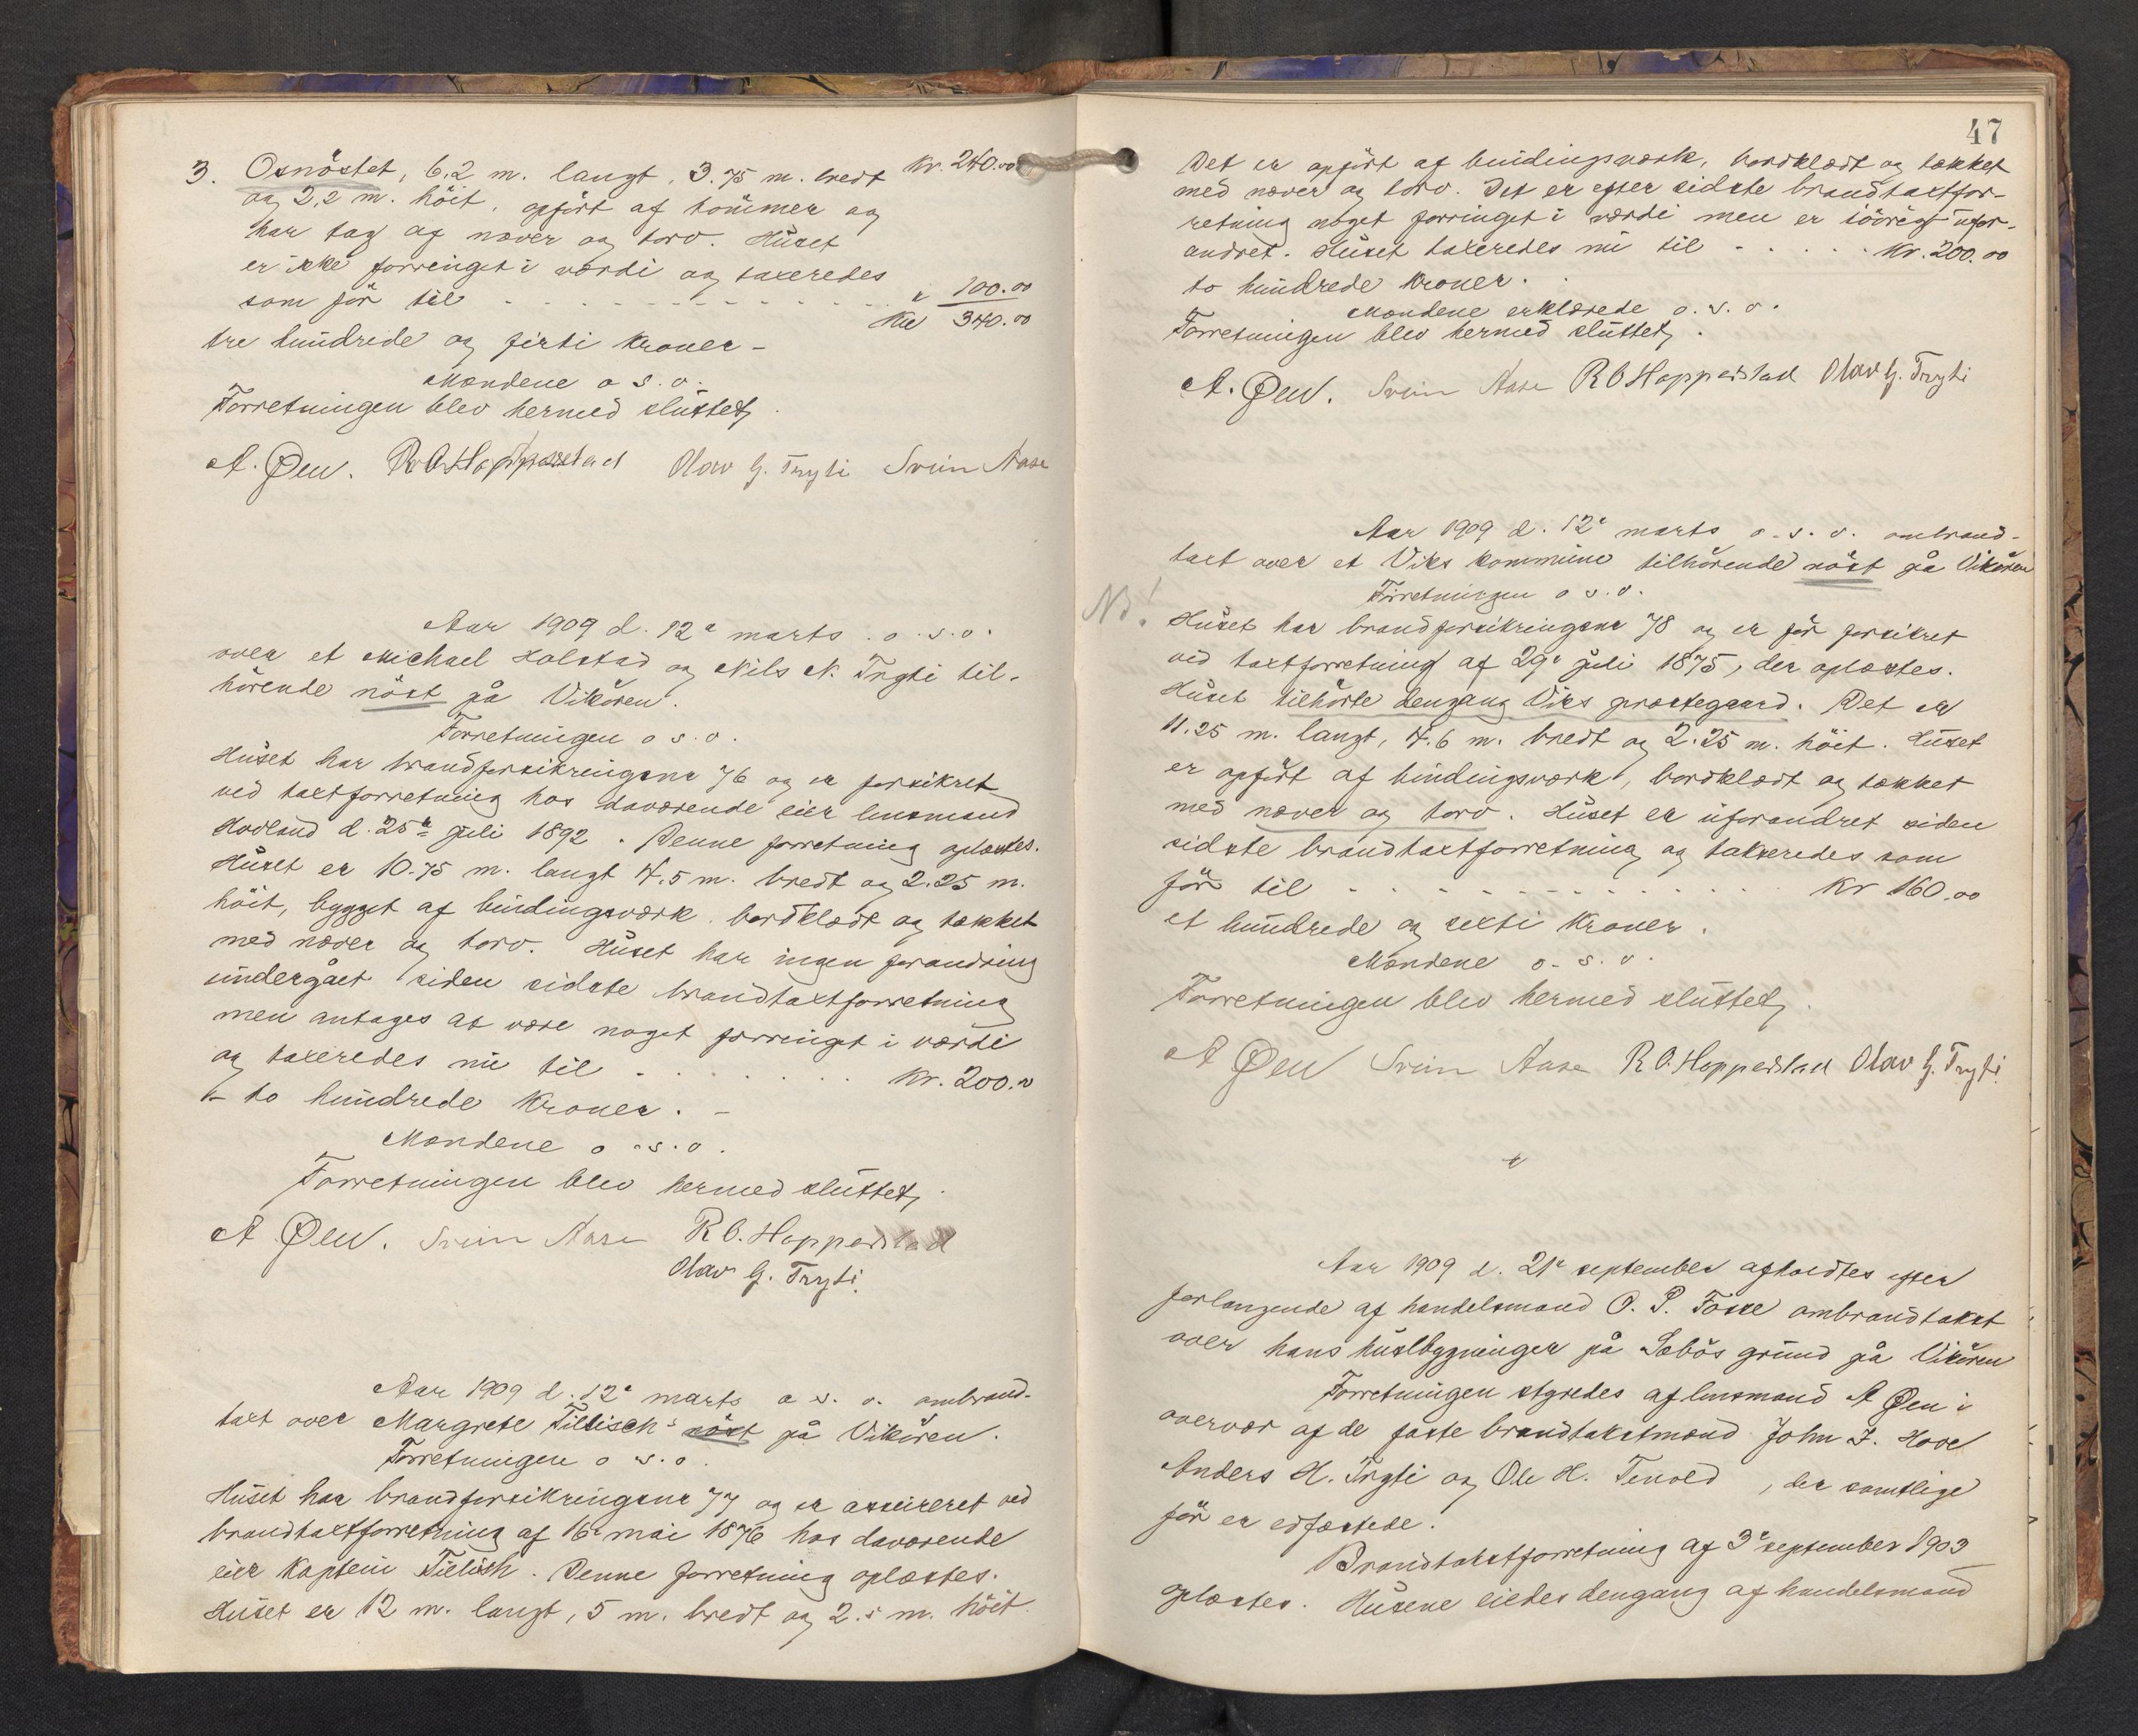 3. Osnöstet, 6,2 m. langt, 3.75 m. bredt kr. 240.00
og 2,2 m. höit, opfört af tömmer og
har tag af næver og torv. Huset
er ikke forringet i værdi og taxeredes
som för til - - - - - - - - - " 100.00
Kr 340.00
tre hundrede og firti kroner -
Mændene o s. v.
Forretningen blev hermed sluttet,
A. Øen. R O Hopperstad Olav G. Tryti Svein Aase
Aar 1909 d. 12te marts . o. s. v.
over et Michael Holstad og Nils N. Tryti til-
hörende nöst på Vikören.
Forretningen o s. v.
Huset har brandforsikringsnr 76 og er forsikret
ved taxtforretning hos daværende eier lensmand
Hovland d. 25te juli 1892. Denne forretning oplæstes.
Huset er 10.75 m. langt 4.5 m. bredt og 2.25 m.
höit, bygget af bindingsværk bordklædt og tækket
med næver og torv. Huset har ingen forandring
undergået siden sidste brandtaxtforretning
men antages at være noget forringet i værdi
og taxeredes nu til . . . . . . . kr. 200.00
- to hundrede kroner. -
Mændene o. s. v.
Forretningen blev hermed sluttet,
A Øen. Svein Aase R O. Hopperstad
Olav G. Tryti.
Aar 1909 d. 12te marts o. s. v. ombrand-
taxt over Margrete Tillisch's nöst på Vikören.
Forretningen o s. v.
Huset har brandforsikringsnr 77 og er assureret ved
brandtaxtforretning af 16de mai 1876 hos daværende
eier kaptein Tillisch. Denne forretning oplæstes.
Huset er 12 m. langt, 5 m. bredt og 2.5 m. höit
47
Det er opfört af bindingsværk, bordklædt og tækket
med næver og torv. Det er efter sidste brandtaxtfor-
retning noget forringet i værdi men er iövrigt ufor-
andret. Huset taxeredes nu til - . . . . kr. 200.00
to hundrede kroner.
Mændene erklærede o. s. v.
Forretningen blev hermed sluttet,
A. Øen. Svein Aase R O Hopperstad Olav G. Tryti
Aar 1909 d. 12te marts o. s. v. ombrand-
taxt over et Viks kommune tilhörende nöst på Vikören
Forretningen o s. v.
Nb! Huset har brandforsikringsnr 78 og er för forsikret
ved taxtforretning af 29de juli 1875, der oplæstes.
Huset tilhörte dengang Viks præstegaard. Det er
11.25 m. langt, 4.6 m. bredt og 2.25 m. höit. Huset
er opfört af bindingsværk, bordklædt og tækket
med næver og torv. Huset er uforandret siden
sidste brandtaxtforretning og takseredes som
för til - - - - - - - - kr 160.00
et hundrede og sexti kroner.
Mændene o. s. v.
Forretningen blev hermed sluttet,
A Øen Svein Aase R O. Hopperstad Olav G. Tryti.
Aar 1909 d. 21de september afholdtes efter
forlangende af handelsmand O. P. Fosse ombrandtakst
over hans husbygninger på Sæbös grund på Vikören
Forretningen styredes af lensmand A Øen i
overvær af de faste brandtakstmænd John I. Hove
Anders H. Tryti og Ole H. Tenold, der samtlige
för er edfæstede.
Brandtakstforretning af 3de september 1903
oplæstes. Husene eiedes dengang af handelsmand